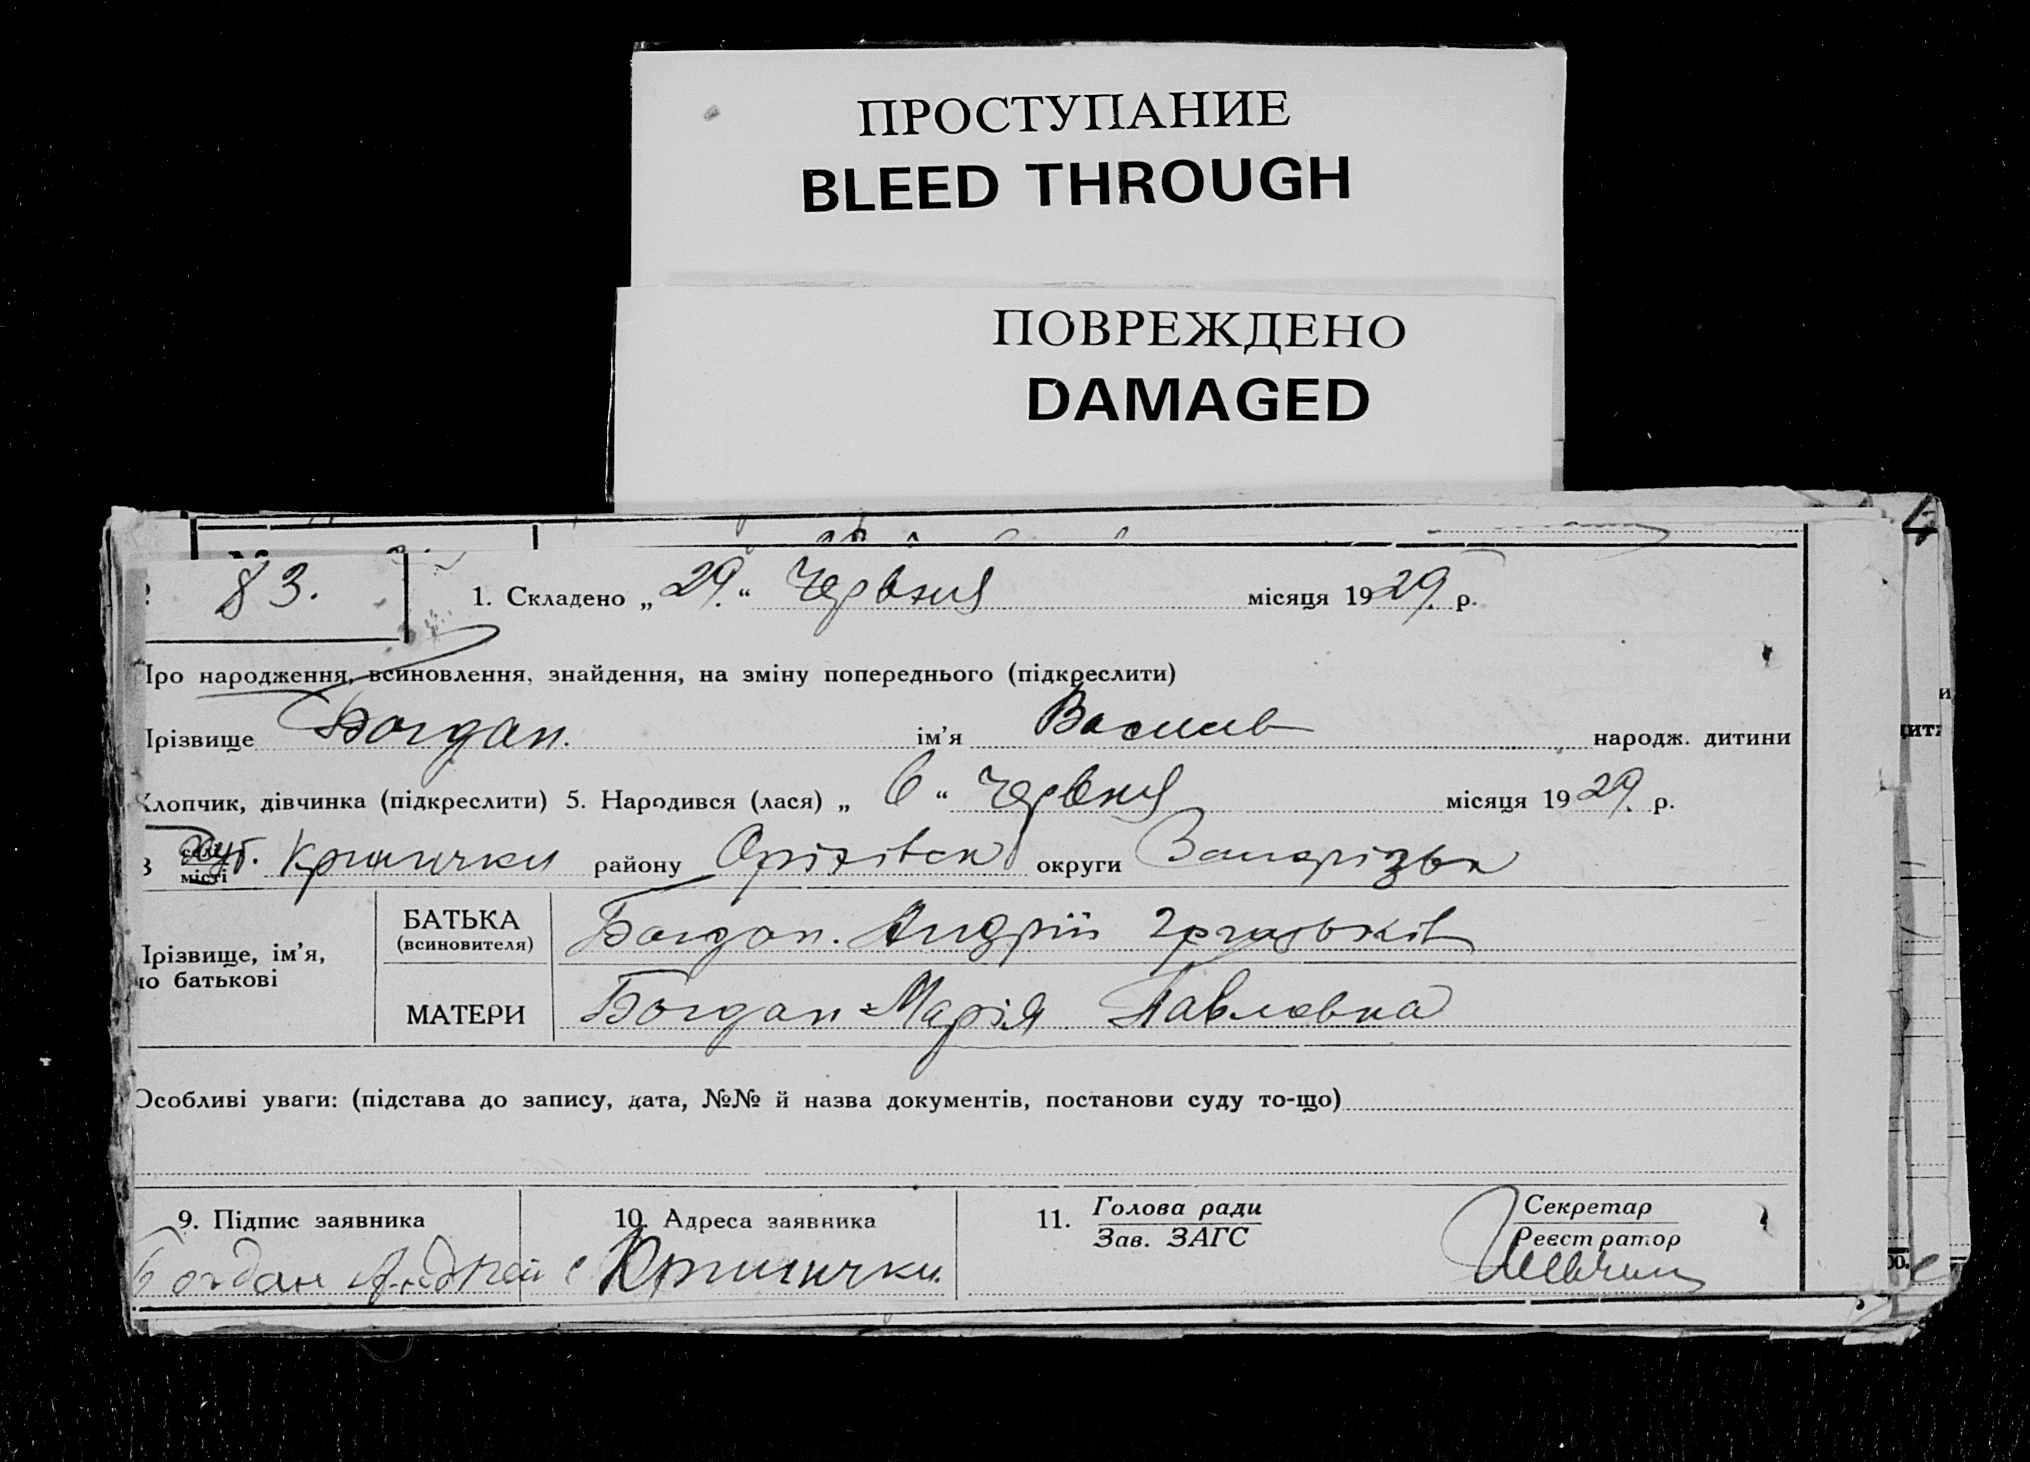 ПРОСТУПАНИЕ
BLEED THROUGH
ПОВРЕЖДЕНО
DAMAGED
83. 1. Складено „29.“ Червня місяця 1929. р.
Про народження, всиновлення, знайдення, на зміну попереднього (підкреслити)
Прізвище Богдан. ім’я народж. дитини
Хлопчик, дівчинка (підкреслити) 5. Народився (лася) „6“ Червня місяця 1929. р.
В хут. Кринички району Оріхівськ округи Запорізьк
місті
Прізвище, ім’я,
по батькові
БАТЬКА
(всиновителя)
Богдан. Андрій
МАТЕРИ
Богдан Марія Павловна
Особливі уваги: (підстава до запису, дата, №№ й назва документів, постанови суду то-що)
9. Підпис заявника
Богдан Андрей
10. Адреса заявника
с Кринички.
11. Голова ради
Зав. ЗАГС
Секретар
Реєстратор